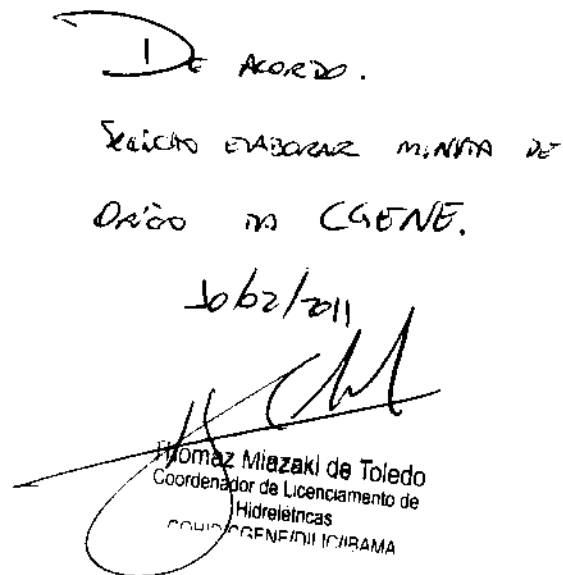 DE ACORDO.
SOLICITO ELABORAR MINUTA DE
OFÍCIO DA CGENE.
10/02/2011
Thomaz Miazaki de Toledo
Coordenador de Licenciamento de
Hidrelétricas
COHID/CGENE/DILIC/IBAMA